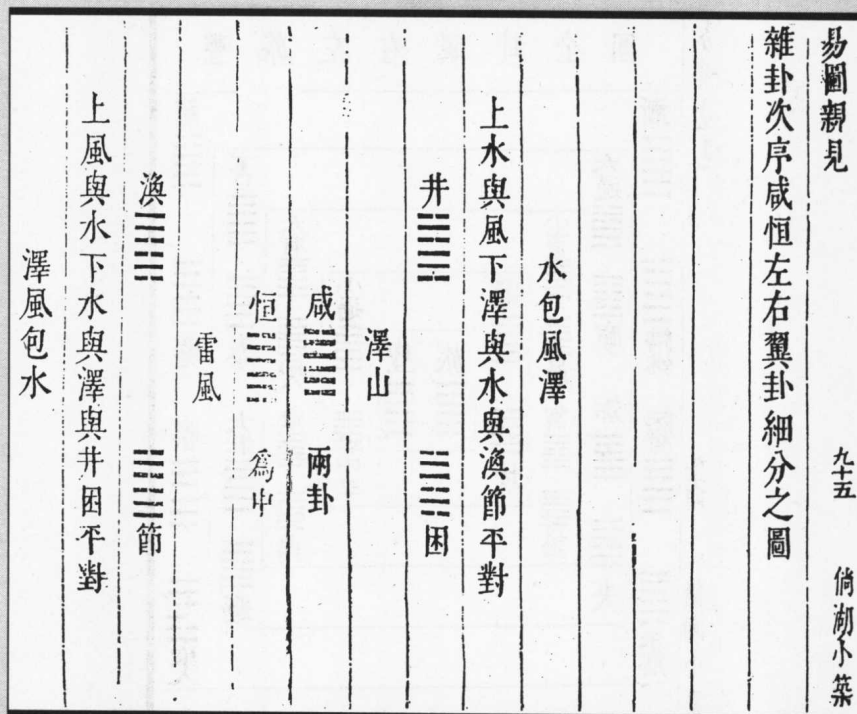 易圖親見 九十五 倘湖小築
雜卦次序咸恒左右翼卦細分之圖
水包風澤
上水與風下澤與水與渙節平對
井 困
澤山
咸 兩卦
恒 爲中
雷風
渙 節
上風與水下水與澤與井困平對
澤風包水